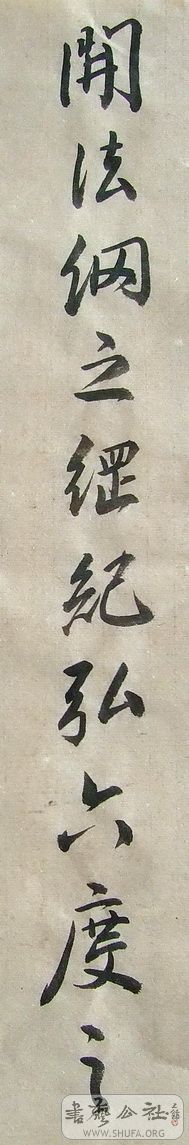 開法綱之綱紀弘六度之
書藝公社
WWW.SHUFA.ORG